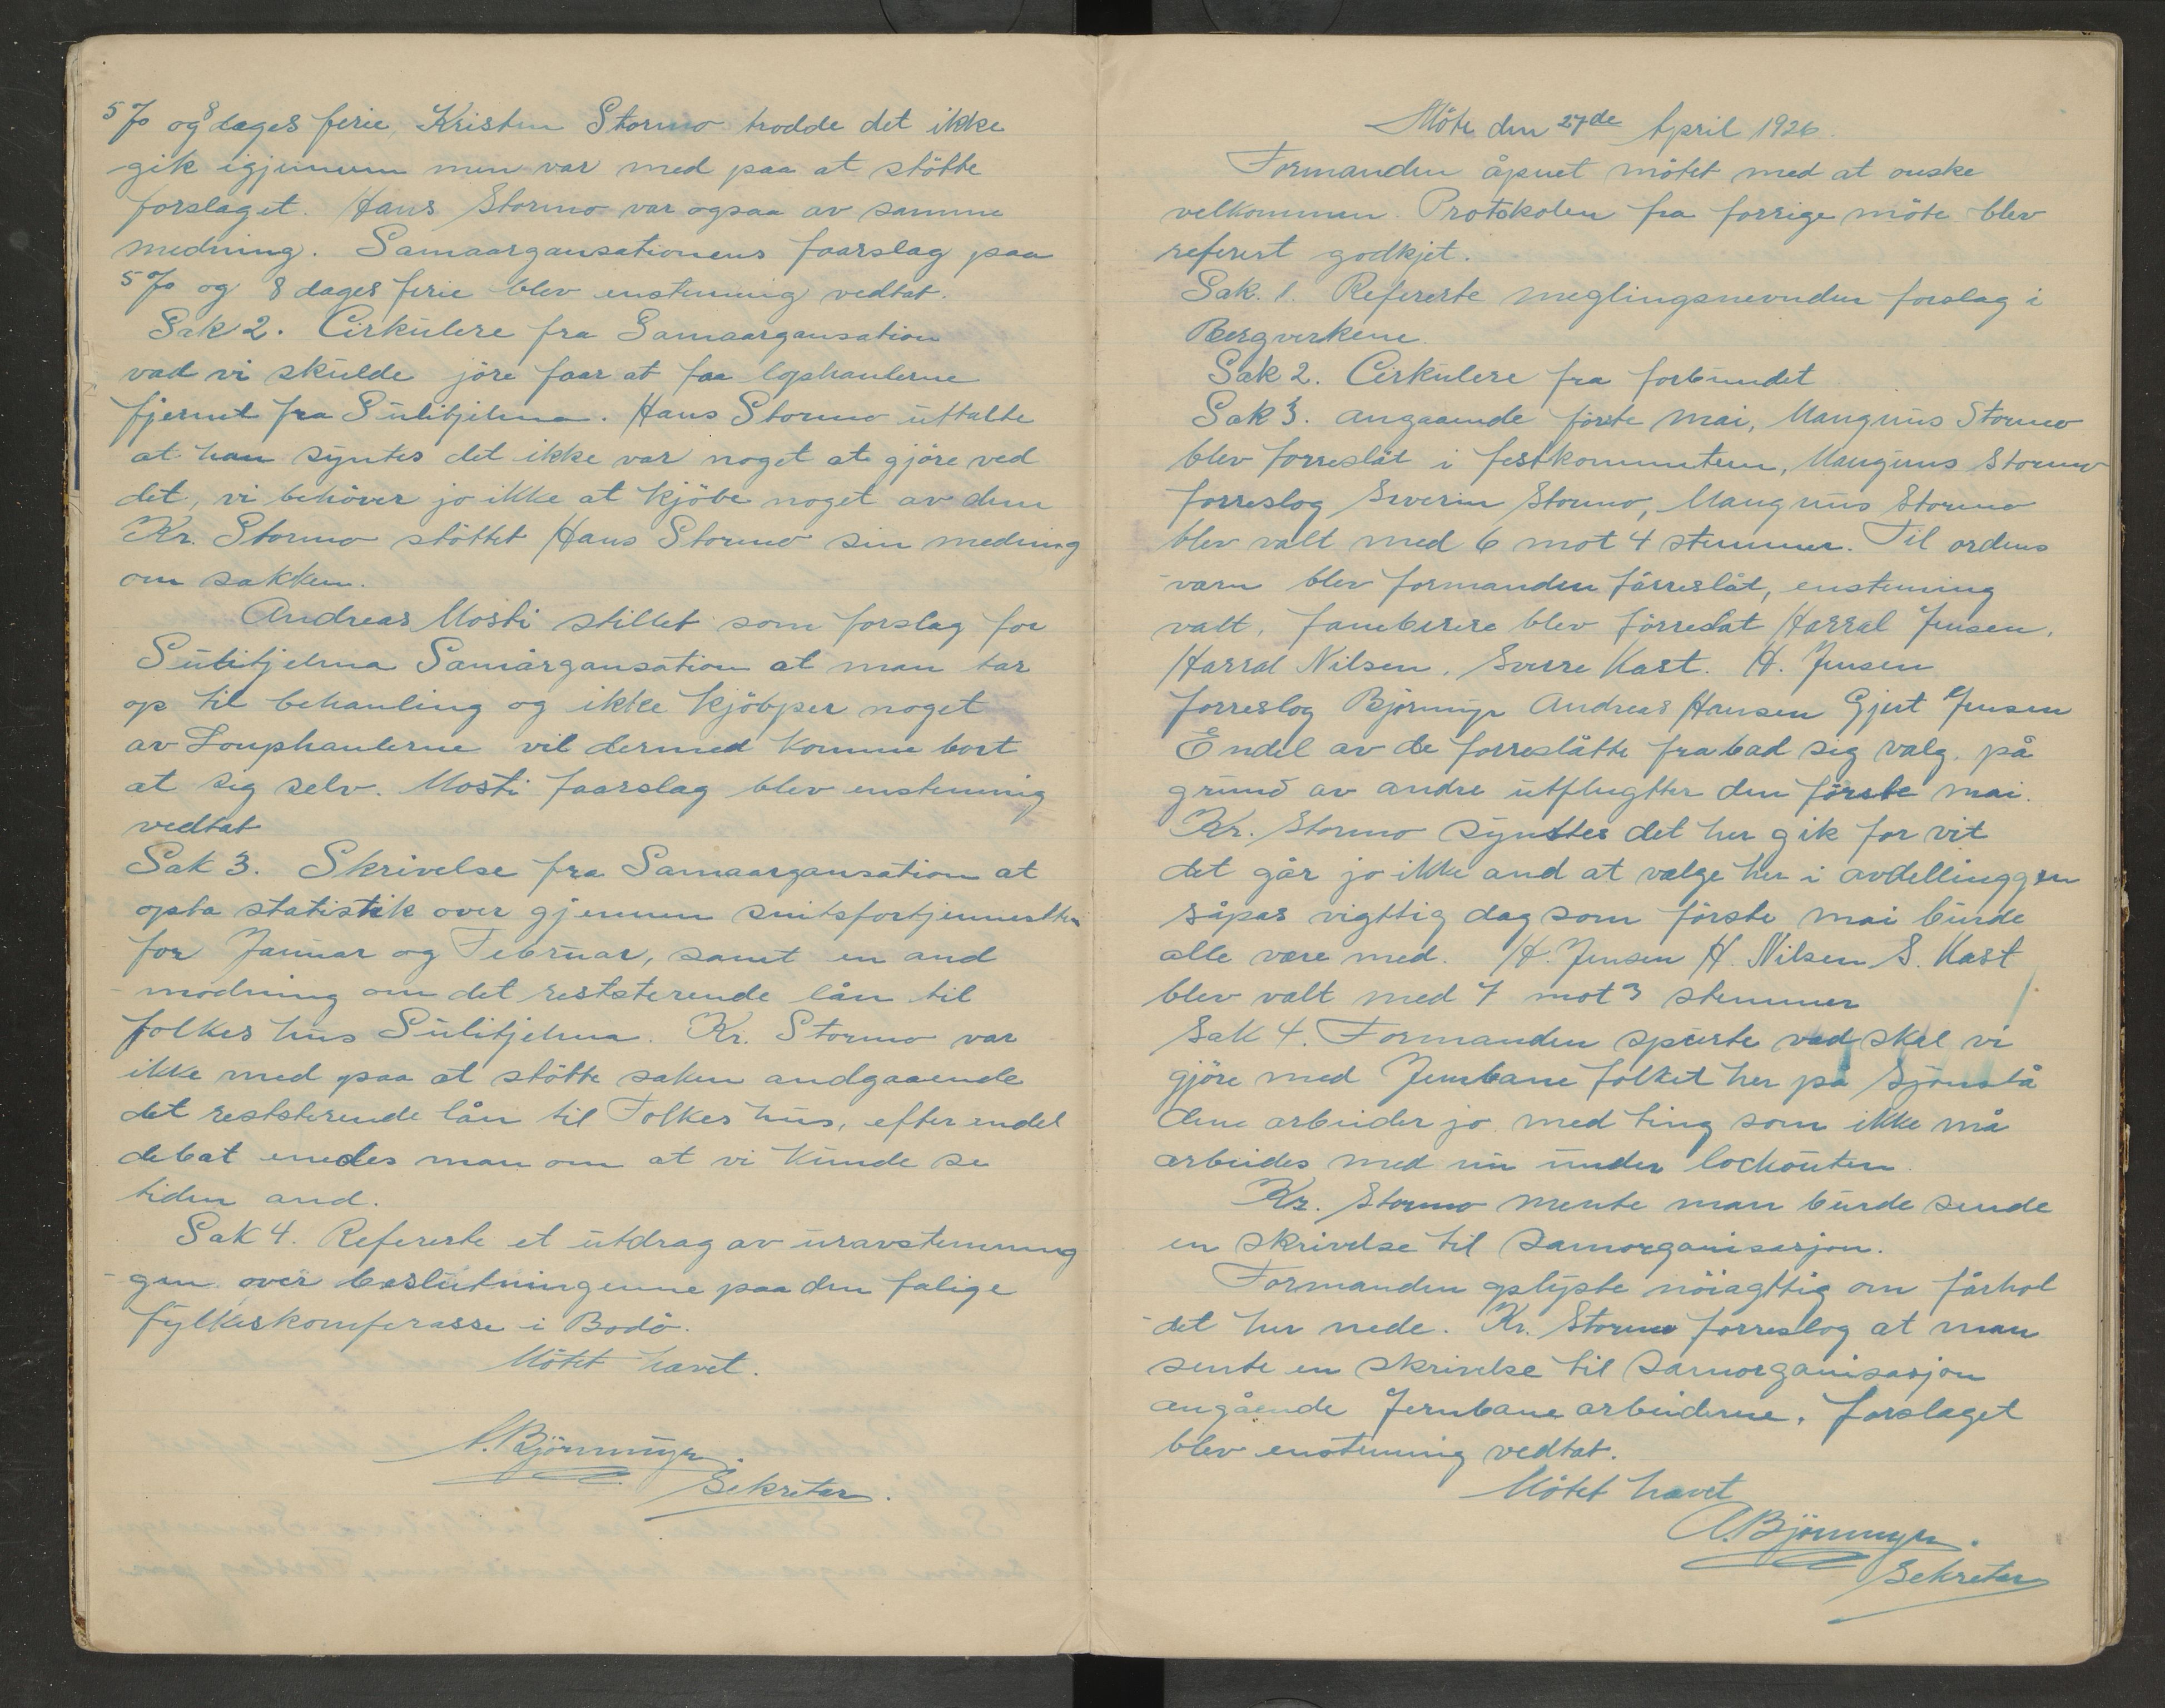 5 % og 8 dages ferie, Kristen Stormo trodde det ikke
gik igjennem men var med paa at stötte
forslaget. Hans Stormo var ogsaa av samme
medning. Samaargansationens faarslag paa
5 % og 8 dages ferie blev enstemmig vedtat.
Sak 2. Cirkulere fra Samaargansation
vad vi skulde jöre faar at faa lophanlerne
fjernet fra Sulitjelma. Hans Stormo uttalte
at han syntes det ikke var noget at gjöre ved
det, vi behöver jo ikke at kjöbe noget av dem
Kr. Stormo stöttet Hans Stormo sin medning
om sakken.
Andreas Mosti stillet som forslag for
Sulitjelma Samårgansation at man tar
op til behanling og ikke kjöbper noget
av Louphanlerne vil dermed komme bort
at sig selv. Mosti faarslag blev enstemmig
vedtat
Sak 3. Skrivelse fra Samaargansation at
opta statistik over gjennem snitsfortjennesten
for Januar og Februar, samt en and
-modning om det reststerende lån til
folkes hus Sulitjelma. Kr. Stormo var
ikke med paa at stötte saken andgaaende
det reststerende lån til Folkes hus, efter endel
debat enedes man om at vi kunde se
tiden and.
Sak 4. Refererte et utdrag av uravstemning
-gen over beslutningenne paa den falige
fylkeskomferasse i Bodö.
Mötet hævet.
A. Björnmyr.
Sekretær.
Möte den 27de April 1926.
Formanden åpnet mötet med at onske
velkommen. Protokolen fra forrige möte blev
referert godkjet.
Sak. 1. Refererte meglingsnevnden forslag i
Bergverkene.
Sak 2. Cirkulere fra forbundet
Sak 3. angaaende förste mai, Mangnus Stormo
blev forreslåt i festkommiteen, Mangnus Stormo
forreslog Severin Stormo, Mangnus Stormo
blev valt med 6 mot 4 stemmer. Til ordens
-varn blev formanden förreslåt, enstemmig
valt. Faneberere blev förreslåt Harral Jensen,
Harral Nilsen, Sverre Kast. H. Jensen
forreslog Björnmyr Andreas Hansen Gjert Jensen
Endel av de forreslåtte frabad sig valg, på
grund av andre utflugtter den förste mai.
Kr. Stormo synstes det her gik for vit
det går jo ikke and at vælge her i avdellinggen
såpas vigttig dag som förste mai burde
alle være med. H. Jensen H. Nilsen S. Kast
blev valt med 7 mot 3 stemmer
Sak 4. Formanden spurte vad skal vi
gjöre med Jernbane folket her på Sjönstå
dem arbeider jo med ting som ikke må
arbeides med nu under lockouten.
Kr. Stormo mente man burde sende
en skrivelse til Samorganisasjon.
Formanden oplyste nöiagttig om fårhol
-det her nede. Kr. Stormo forreslog at man
sente en skrivelse til Samorganisasjon
angående Jernbane arbeiderne. Forslaget
blev enstemmig vedtat.
Mötet hævet
A. Björnmyr.
Sekretær